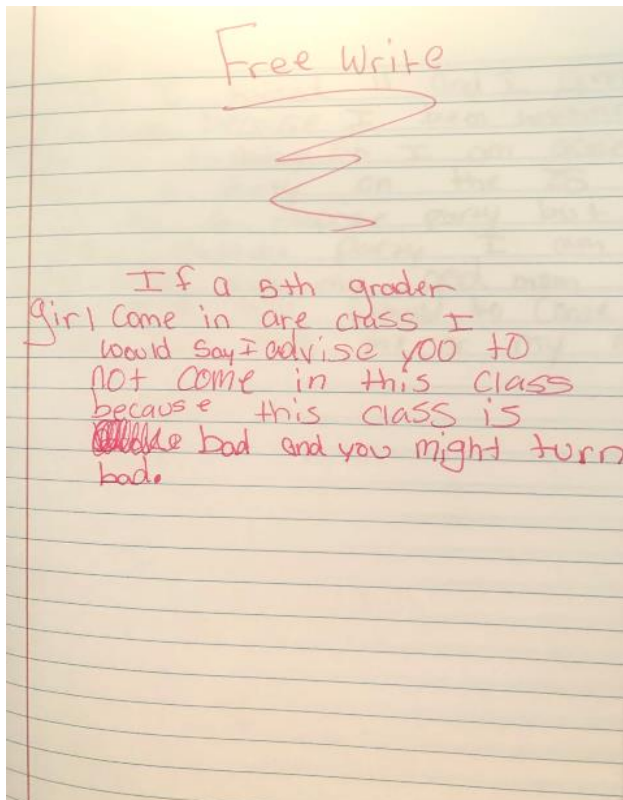 Free Write
If a 5th grader
girl come in are class I
would say I advise yoo to
not come in this class
because this class is
bad and you might turn
bad.